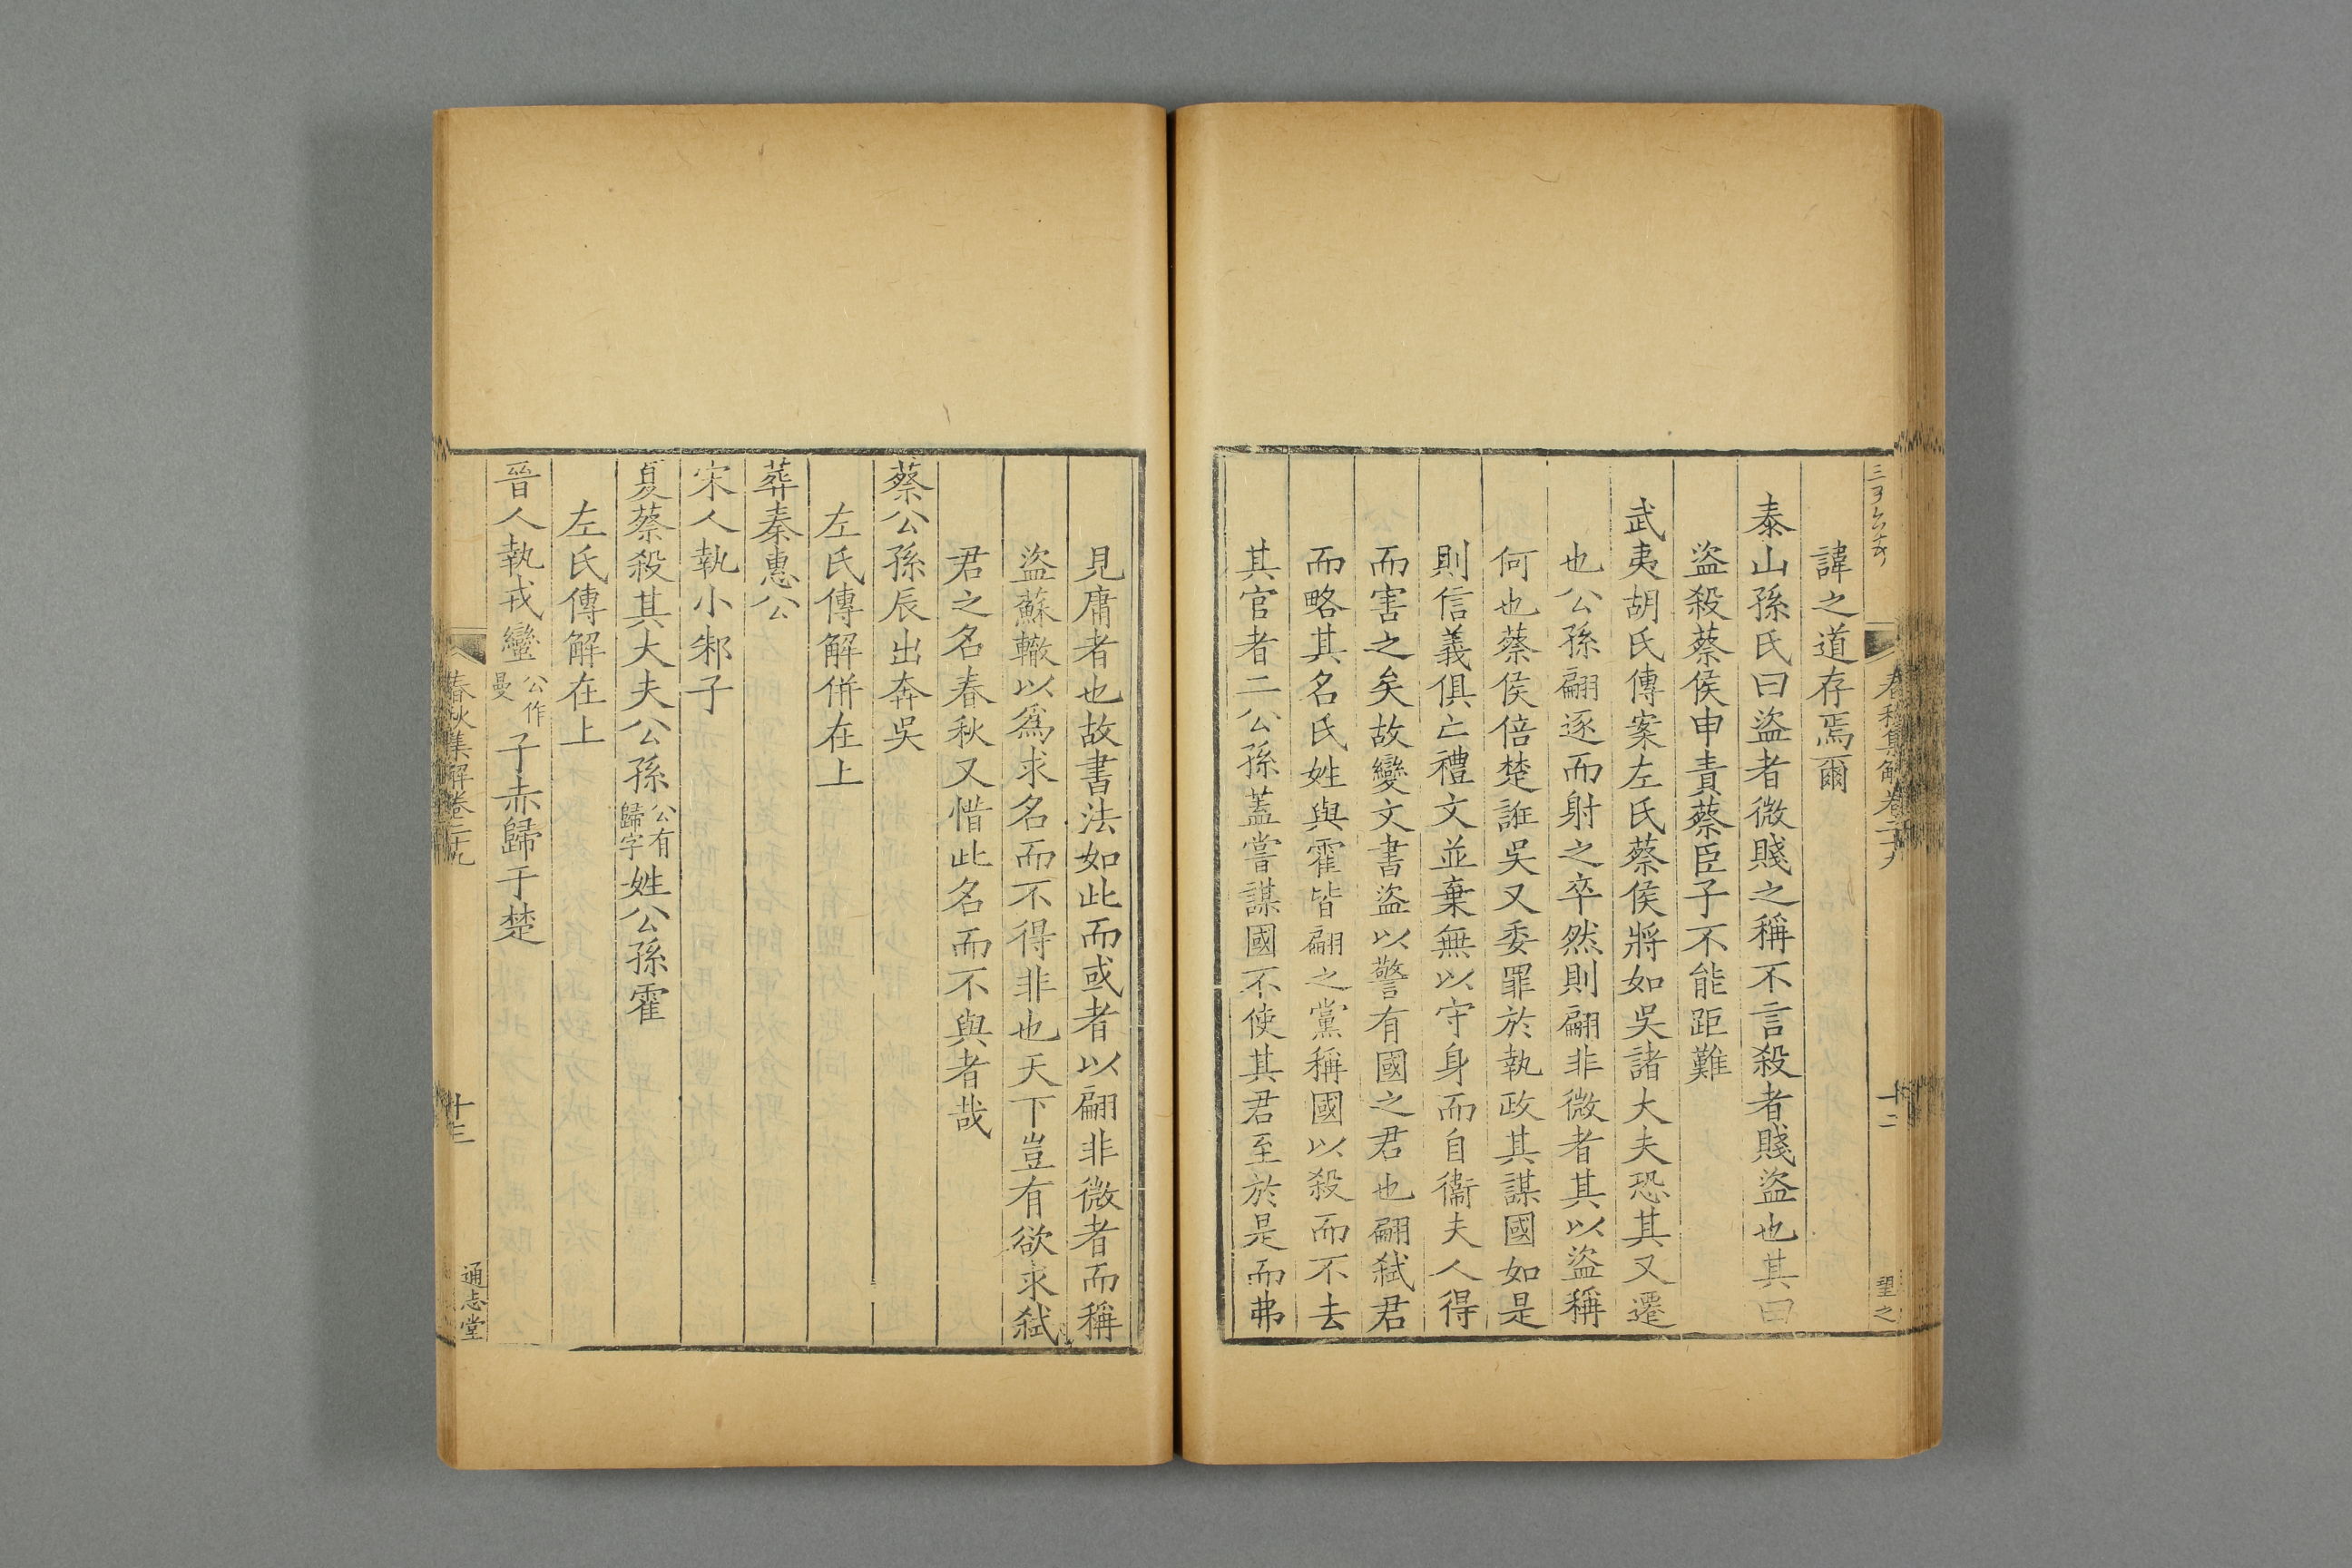 春秋集解卷二十九
十二
望之
諱之道存焉爾
泰山孫氏曰盜者微賤之稱不言殺者賤盜也其曰
盜殺蔡侯申責蔡臣子不能距難
武夷胡氏傳案左氏蔡侯將如吳諸大夫恐其又遷
也公孫翩逐而射之卒然則翩非微者其以盜稱
何也蔡侯倍楚誑吳又委罪於執政其謀國如是
則信義俱亡禮文並棄無以守身而自衞夫人得
而害之矣故變文書盜以警有國之君也翩弒君
而略其名氏姓與霍皆翩之黨稱國以殺而不去
其官者二公孫蓋嘗謀國不使其君至於是而弗
見庸者也故書法如此而或者以翩非微者而稱
盜蘇轍以爲求名而不得非也天下豈有欲求弒
君之名春秋又惜此名而不與者哉
蔡公孫辰出奔吳
左氏傳解併在上
葬秦惠公
宋人執小邾子
夏蔡殺其大夫公孫公有歸字姓公孫霍
左氏傳解在上
晉人執戎蠻公作曼子赤歸于楚
春秋集解卷二十九
十三
通志堂